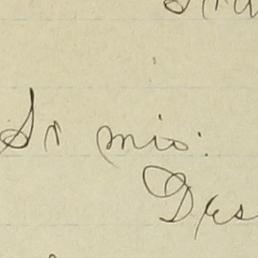 Sr mio:
Des